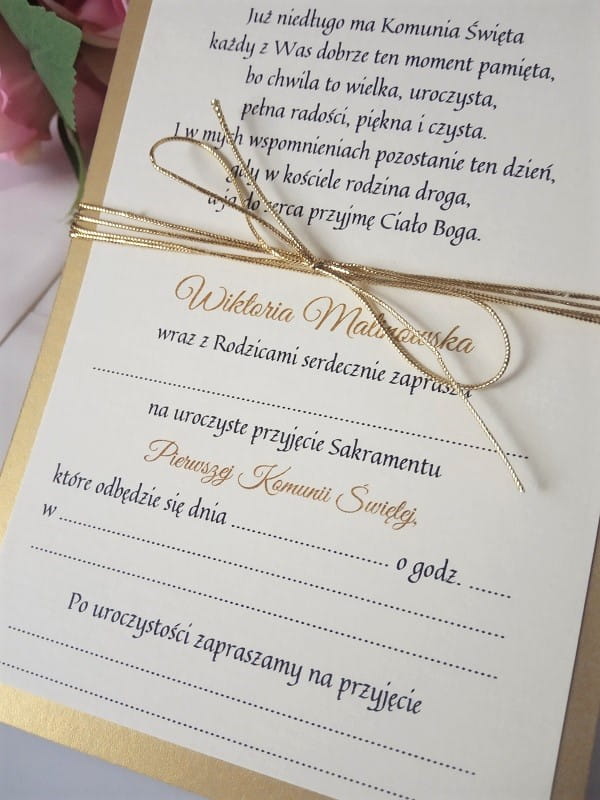 Już niedługo ma Komunia Święta
każdy z Was dobrze ten moment pamięta,
bo chwila to wielka, uroczysta,
pełna radości, piękna i czysta.
I w mych wspomnieniach pozostanie ten dzień,
gdy w kościele rodzina droga,
a ja do serca przyjmę Ciało Boga.
Wiktoria Malinowska
wraz z Rodzicami serdecznie zaprasza
na uroczyste przyjęcie Sakramentu
Pierwszej Komunii Świętej,
które odbędzie się dnia ........................... o godz. .......
w
Po uroczystości zapraszamy na przyjęcie